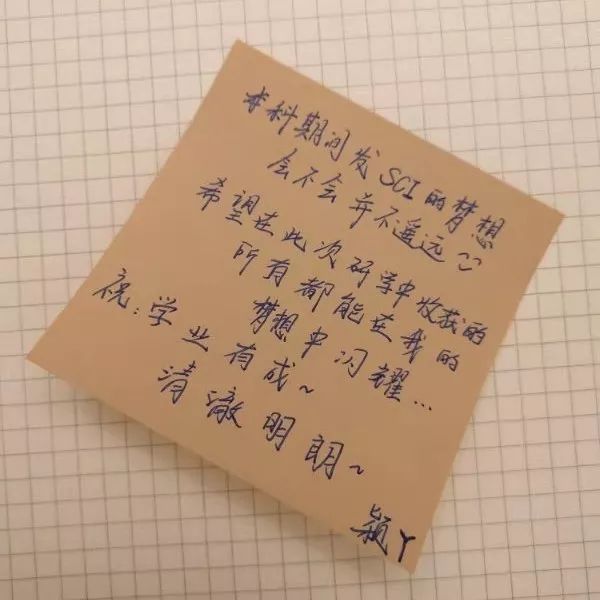 本科期间发SCI的梦想
会不会并不遥远
希望在此次研学中收获的
所有都能在我的
梦想中闪耀...
祝:学业有成~
清澈明朗~
颖丫